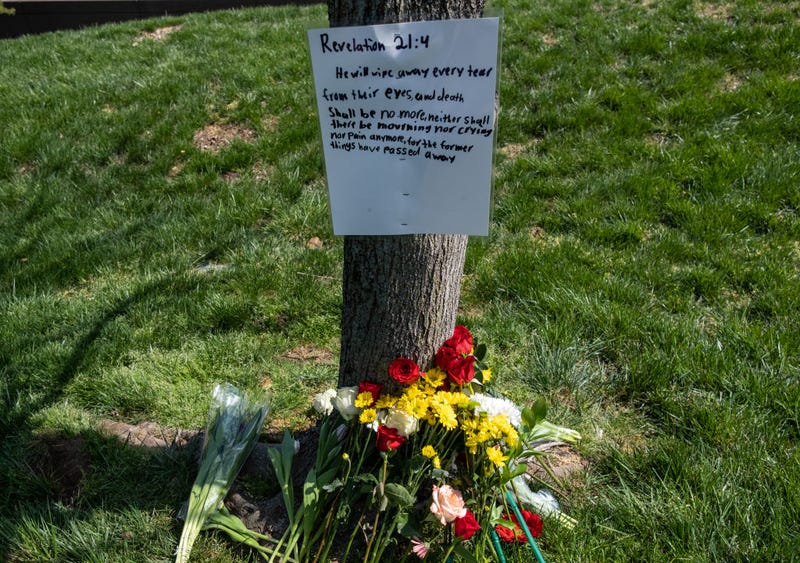 Revelation 21:4
He will wipe away every tear
from their eyes, and death
Shall be no more, neither shall
there be mourning nor crying
nor pain anymore, for the former
things have passed away